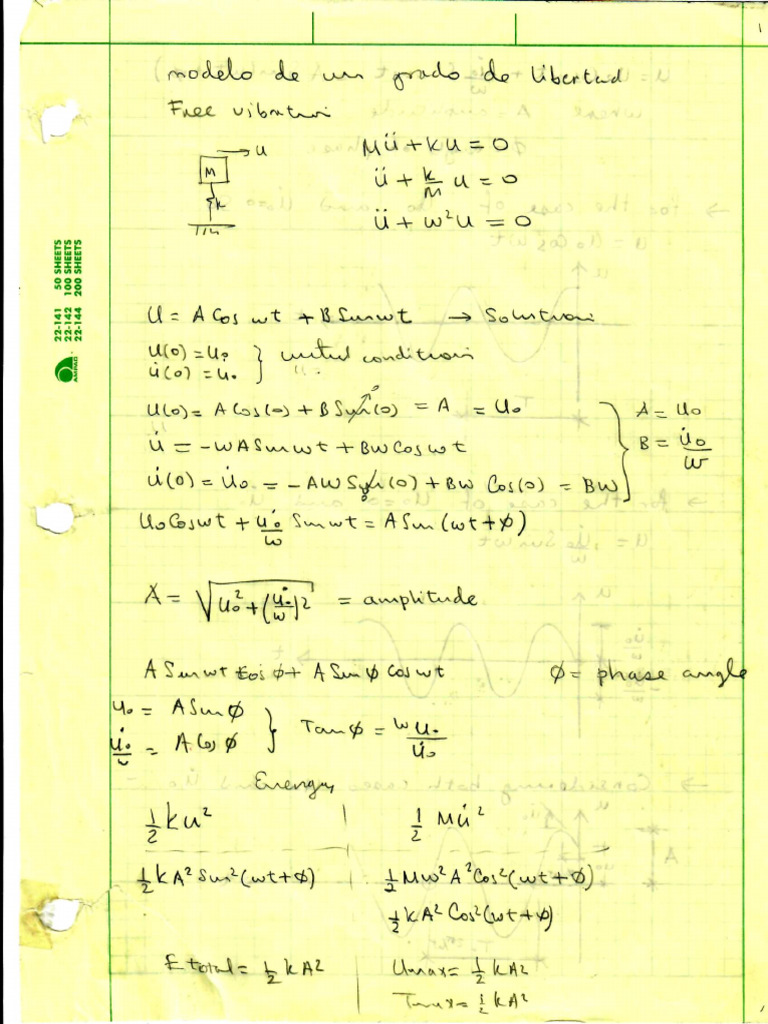 1
modelo de un grado de libertad
Free vibration
U
M
k
Mü + KU = 0
ü + k/M U = 0
ü + ω²U = 0
22-141 50 SHEETS
22-142 100 SHEETS
22-144 200 SHEETS
AMPAD
U = A Cos ωt + B Sin ωt → Solution
U(0) = U₀ } initial condition
u̇(0) = u̇₀
U(0) = A Cos(0) + B Sin(0) = A = U₀
A = U₀
u̇ = -ωA Sin ωt + Bω Cos ωt
B = u̇₀/ω
u̇(0) = u̇₀ = -Aω Sin(0) + Bω Cos(0) = Bω
U₀ Cos ωt + u̇₀/ω Sin ωt = A Sin(ωt + φ)
A = √(U₀² + (u̇₀/ω)²) = amplitude
A Sin ωt Cos φ + A Sin φ Cos ωt φ = phase angle
U₀ = A Sin φ
u̇₀/ω = A Cos φ } Tan φ = ω U₀/u̇₀
Energy
½ k u² | ½ M u̇²
½ k A² Sin²(ωt + φ) | ½ M ω² A² Cos²(ωt + φ)
½ k A² Cos²(ωt + φ)
E total = ½ k A² | Umax = ½ k A²
Tmax = ½ k A²